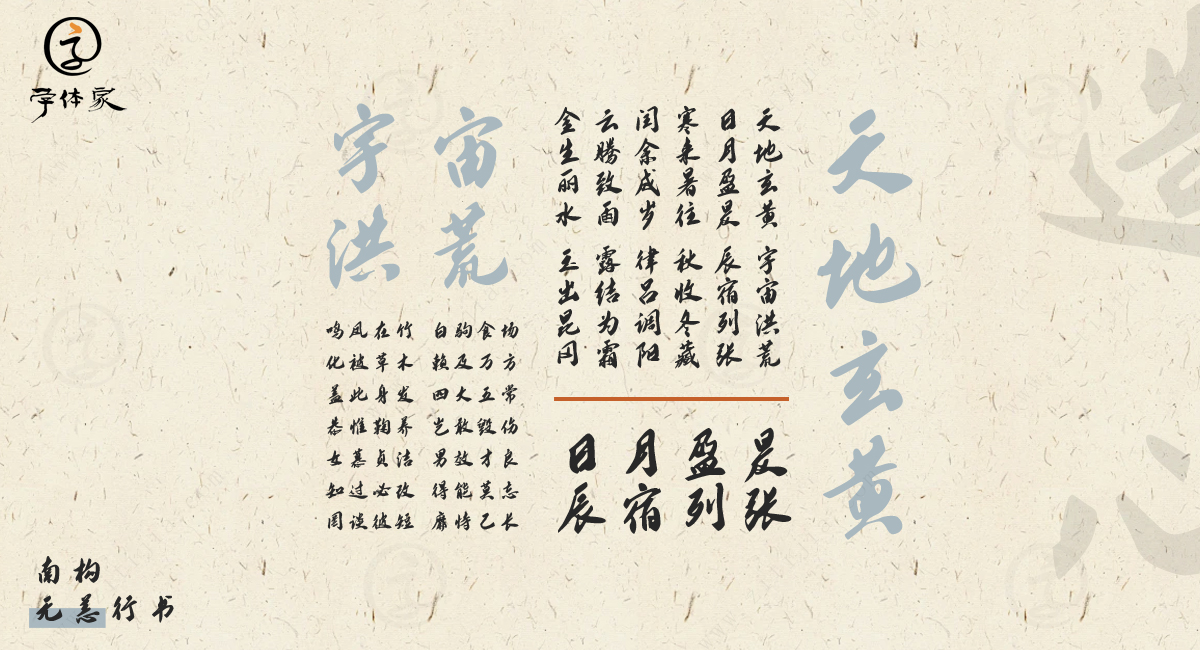 字
字体家
天地玄黄
天地玄黄 宇宙洪荒
日月盈昃 辰宿列张
寒来暑往 秋收冬藏
闰余成岁 律吕调阳
云腾致雨 露结为霜
金生丽水 玉出昆冈
日月盈昃
辰宿列张
宇宙
洪荒
鸣凤在竹 白驹食场
化被草木 赖及万方
盖此身发 四大五常
恭惟鞠养 岂敢毁伤
女慕贞洁 男效才良
知过必改 得能莫忘
罔谈彼短 靡恃己长
南构
无恙行书